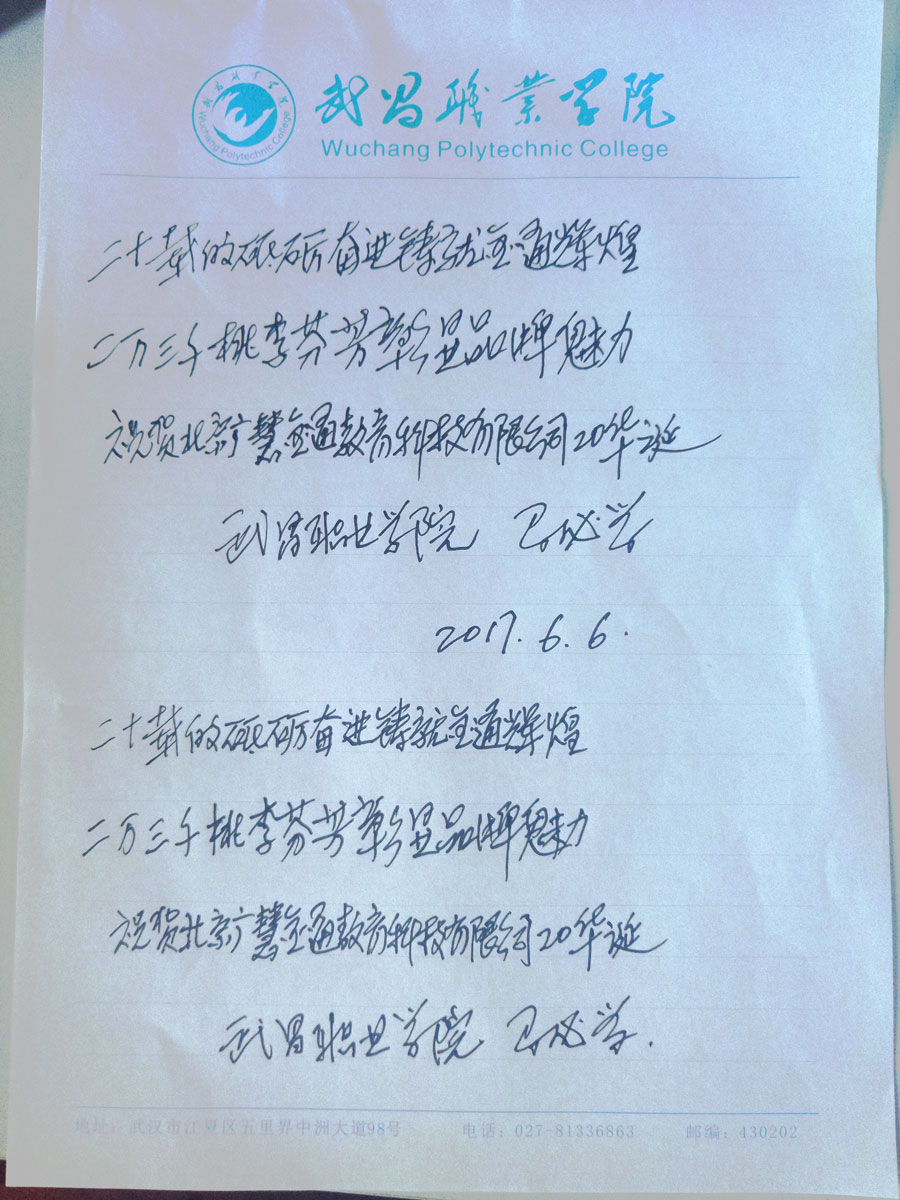 武昌职业学院
Wuchang Polytechnic College
武昌職業学院
Wuchang Polytechnic College
二十载的砥砺奋进铸就金通辉煌
二万三千桃李芬芳彰显品牌魅力
祝贺北京广慧金通教育科技有限公司20华诞
武昌职业学院 马必学
2017.6.6.
二十载的砥砺奋进铸就金通辉煌
二万三千桃李芬芳彰显品牌魅力
祝贺北京广慧金通教育科技有限公司20华诞
武昌职业学院 马必学.
地址：武汉市江夏区五里界中洲大道98号 电话：027-81336863 邮编：430202